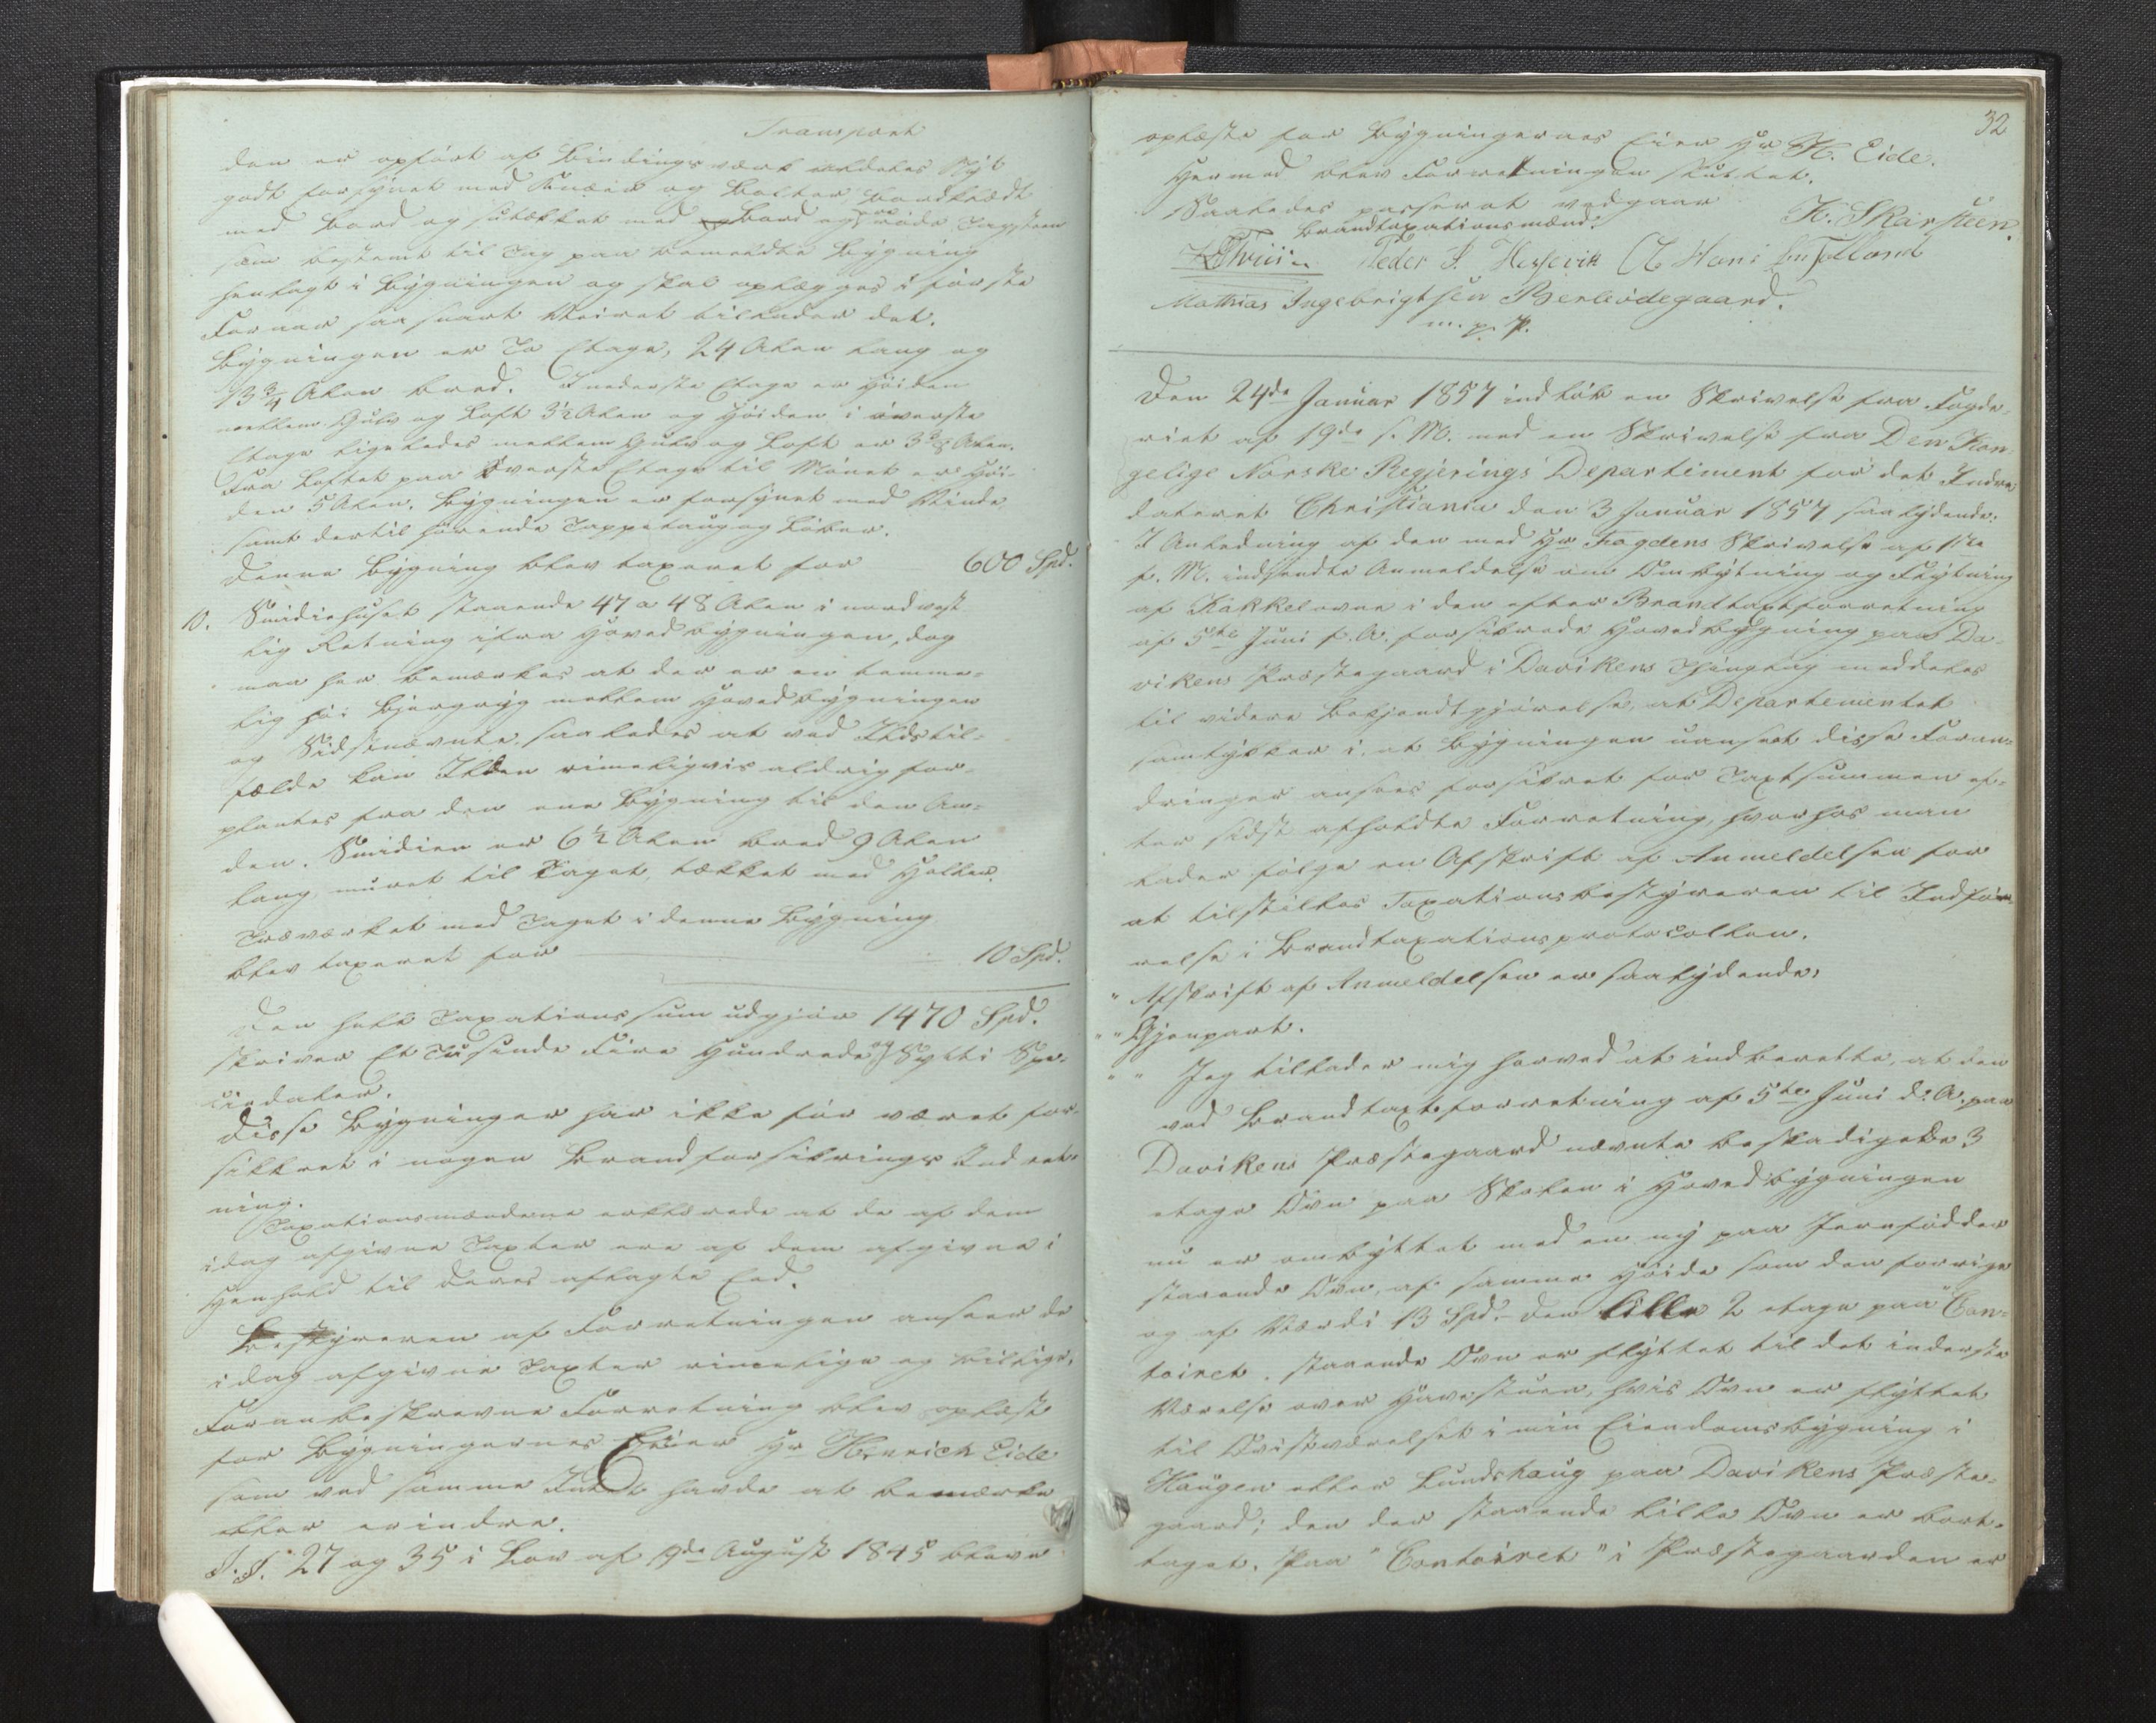 Transport
den er opført af Bindingsværk aldeles Nyt
godt forsynet med Knæer og Bolter, bordklædt
med Bord og sutækket med Bord og røde Tagsteen
som bestemt til Tag paa bemeldte Bygning
henlagt i Bygningen og skal oplægges i første
Foraar saa snart Veiret tillader det.
Bygningen er To Etage, 24 Alen lang og
13 3/4 Alen bred. I nederste Etage er Høiden
mellem Gulv og Loft 3 1/2 Alen og Høiden i øverste
Etage ligeledes mellem Gulv og Loft er 3 3/8 Alen.
Fra Loftet paa øverste Etage til Mønet er Høi-
den 5 Alen. Bygningen er forsynet med Vinde,
samt dertil hørende Toppetaug og Løber.
Denne Bygning blev taxeret for 600 Spd.
10. Smidiehuset staaende 47 a 48 Alen i nordvest
lig Retning ifra Hovedbygningen, dog
maa her bemærkes at der er en temme-
lig høi Bjergryg mellem Hovedbygningen
og Sidstnævnte, saaledes at ved Ildstil-
fælde kan Ilden rimeligvis aldrig for-
plantes fra den ene Bygning til den An-
den. Smidien er 6 1/2 Alen bred 9 Alen
lang, muret til Taget, tækket med Heller.
Træværket med Taget i denne Bygning
blev taxeret for 10 Spd.
Den hele Taxationssum udgjør 1470 Spd.
skriver Et Tusinde Fire Hundrede og Sytti Spe-
ciedaler.
Disse Bygninger har ikke før været for-
sikkret i nogen Brandforsikrings Indret-
ning.
Taxationsmændene erklærede at de af dem
idag afgivne Taxter ere af dem afgivne i
Henhold til deres aflagte Eed.
Bestyreren af Forretningen anseer de
idag afgivne Taxter rimelige og billige.
Foranbeskrevne Forretning blev oplæst
for Bygningernes Eier Hr Henrich Eide
som ved samme Intet havde at bemærke
eller erindre.
§.§. 27 og 35 i Lov af 19de August 1845 bleve
32
oplæste for Bygningernes Eier Hr H. Eide.
Hermed blev Forretningen sluttet.
Saaledes passeret vedgaar H. Skarsteen.
Brandtaxationsmænd.
Peder S. Hessevik
Mathias Ingebrigtsen Berleødegaard.
m. p. P.
Den 24de Januar 1857 indløb en Skrivelse fra Fogde-
riet af 19de s. M. med en Skrivelse fra Den Kon-
gelige Norske Regjerings Departement for det Indre
dateret Christiania den 3 Januar 1857 saalydende:
I Anledning af den med Hr Fogdens Skrivelse af 11te
f. M. indsendte Anmeldelse om Ombytning og Flytning
af Kakkelovne i den efter Brandtaxtforretning
af 5te Juni f. A. forsikrede Hovedbygning paa Da-
vikens Præstegaard i Davikens Thinglag meddeles
til videre Bekjendtgjørelse, at Departementet
samtykker i, at Bygningen uanseet disse Foran-
dringer ansees forsikret for Taxtsummen ef-
ter sidst afholdte Forretning, hvorhos man
lader følge en Afskrift af Anmeldelsen for
at tilstilles Taxationsbestyreren til Indfø-
relse i Brandtaxationsprotocollen.
" Afskrift af Anmeldelsen er saalydende:
" " Gjenpart.
" " Jeg tillader mig herved at indberette, at den
ved Brandtaxtforretning af 5te Juni d. A. paa
Davikens Præstegaard nævnte beskadigede 3
etages Ovn paa Skolen i Hovedbygningen
nu er ombyttet med en ny paa Jernfødder
staaende Ovn, af samme Høide som den forrige
og af Værdi 13 Spd. - Den lille 2 etages paa "Con-
toiret" staaende Ovn er flyttet til det inderste
Værelse over Havestuen, hvis Ovn er flyttet
til Qvistværelset i min Eiendomsbygning i
Haugen eller Lundshaug paa Davikens Præste-
gaard; den der staaende lille Ovn er bort-
taget. Paa "Contoiret" i Præstegaarden er